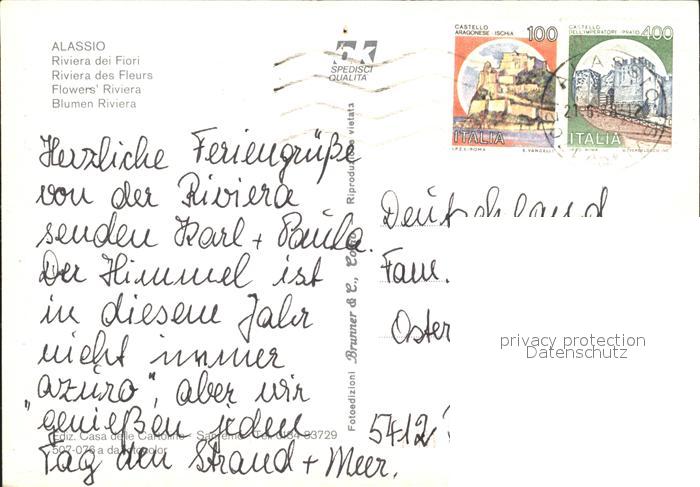 ALASSIO
Riviera dei Fiori
Riviera des Fleurs
Flowers' Riviera
Blumen Riviera
SPEDISCI
QUALITÀ
CASTELLO
ARAGONESE ISCHIA 100
ITALIA
I.P.Z.S. ROMA
CASTELLO
DELL'IMPERATORE PRATO 400
ITALIA
Herzliche Feriengrüße
von der Riviera
senden Karl + Paula.
Der Himmel ist
in diesem Jahr
nicht immer
azuro", aber wir
"genießen jeden
Tag den Strand + Meer.
Ediz. Casa delle Cartoline - Sanremo - Tel. 0184-83729
507-076 a da fotocolor
Fotoedizioni Brunner & C., Como Riproduzione vietata
Deutschland
Fam.
Oster
5412
privacy protection
Datenschutz